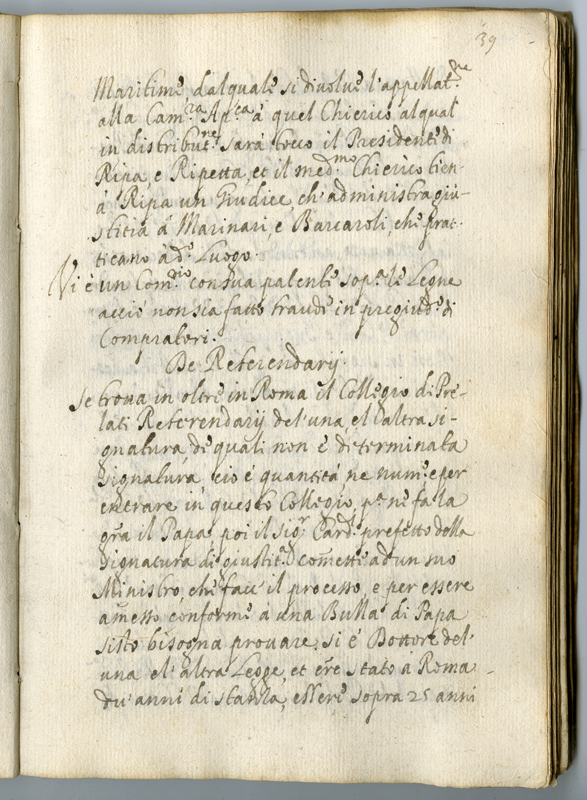 39
Maritime dalquale si divolue l'appellat.ne
alla Cam.ra Ap.ca à quel Chierico, alqual
in distribut.ne sarà tocco il Presidente di
Ripa, e Ripetta, et il med.mo Chierico tien
à Ripa un Giudice ch'administra giu-
stitia à Marinari, e Barcaroli, che prat-
ticano à d.o Luogo.
Vi è un Com.rio con sua patente sop.a le Legne
acciò non sia fatto fraude in pregiud.o di
Compratori.
De Referendarij
Se troua in oltre in Roma il Collegio di Pre-
lati Referendarij del'una, el'altra si-
gnatura, de quali non è determinata
signatura, cio è quantità ne num.o e per
entrare in questo Collegio, p.a ne fa la
gr̃a il Papa, poi il Sig.r Card. prefetto della
signatura di giustit.a comette ad un suo
Ministro, che facci il processo, e per essere
amesso conforme à una Bulla di Papa
Sisto bisogna prouare, si è Dottore del'
una el'altra Legge, et ẽre stato à Roma
du' anni di stanza, essere sopra 25 anni